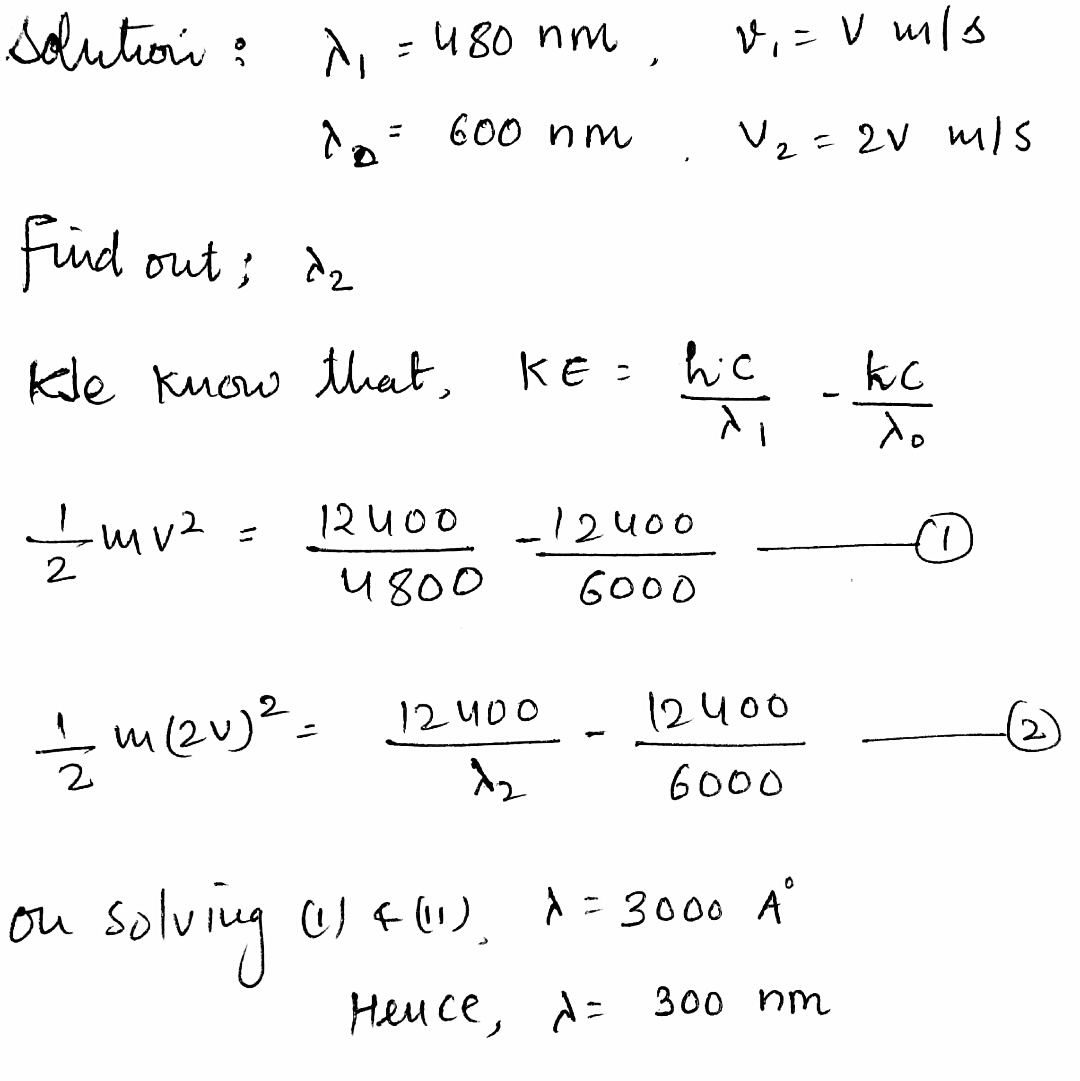 Solution : λ₁ = 480 nm , v₁ = V m/s
λ₀ = 600 nm , V₂ = 2V m/s
find out ; λ₂
We know that, KE = h·c/λ₁ - hc/λ₀
1/2 mv² = 12400/4800 - 12400/6000 ——— ①
1/2 m(2v)² = 12400/λ₂ - 12400/6000 ——— ②
on solving (1) & (11), λ = 3000 A°
Hence, λ = 300 nm